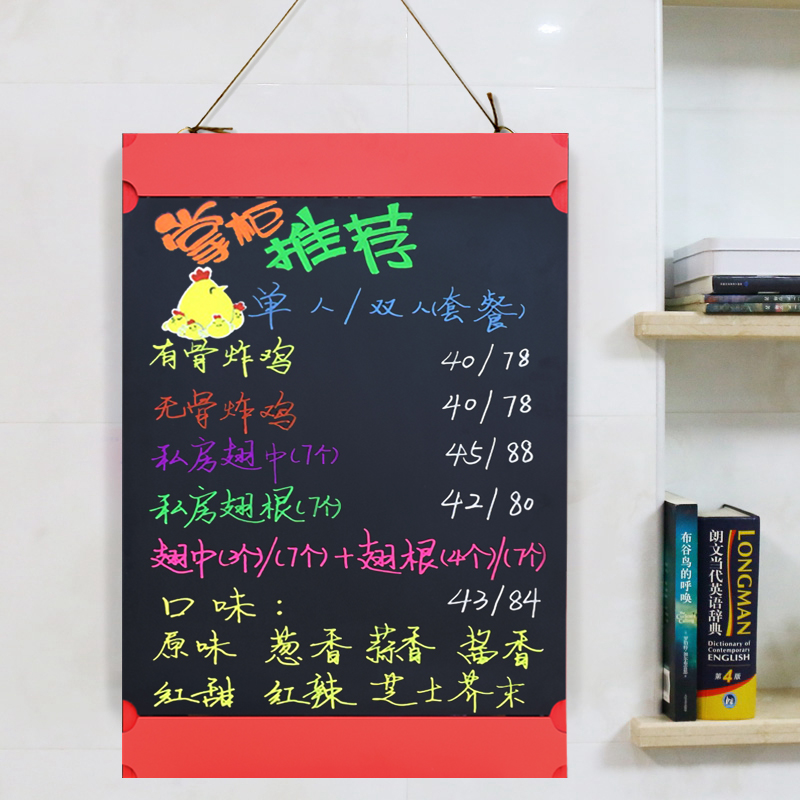 掌柜推荐
单人/双人(套餐)
有骨炸鸡 40/78
无骨炸鸡 40/78
私房翅中(7个) 45/88
私房翅根(7个) 42/80
翅中(3个)/(7个)+翅根(4个)/(7个)
口味: 43/84
原味 葱香 蒜香 酱香
红甜 红辣 芝士芥末
布谷鸟的呼唤
朗文当代英语辞典
LONGMAN
Dictionary of
Contemporary
ENGLISH
第4版